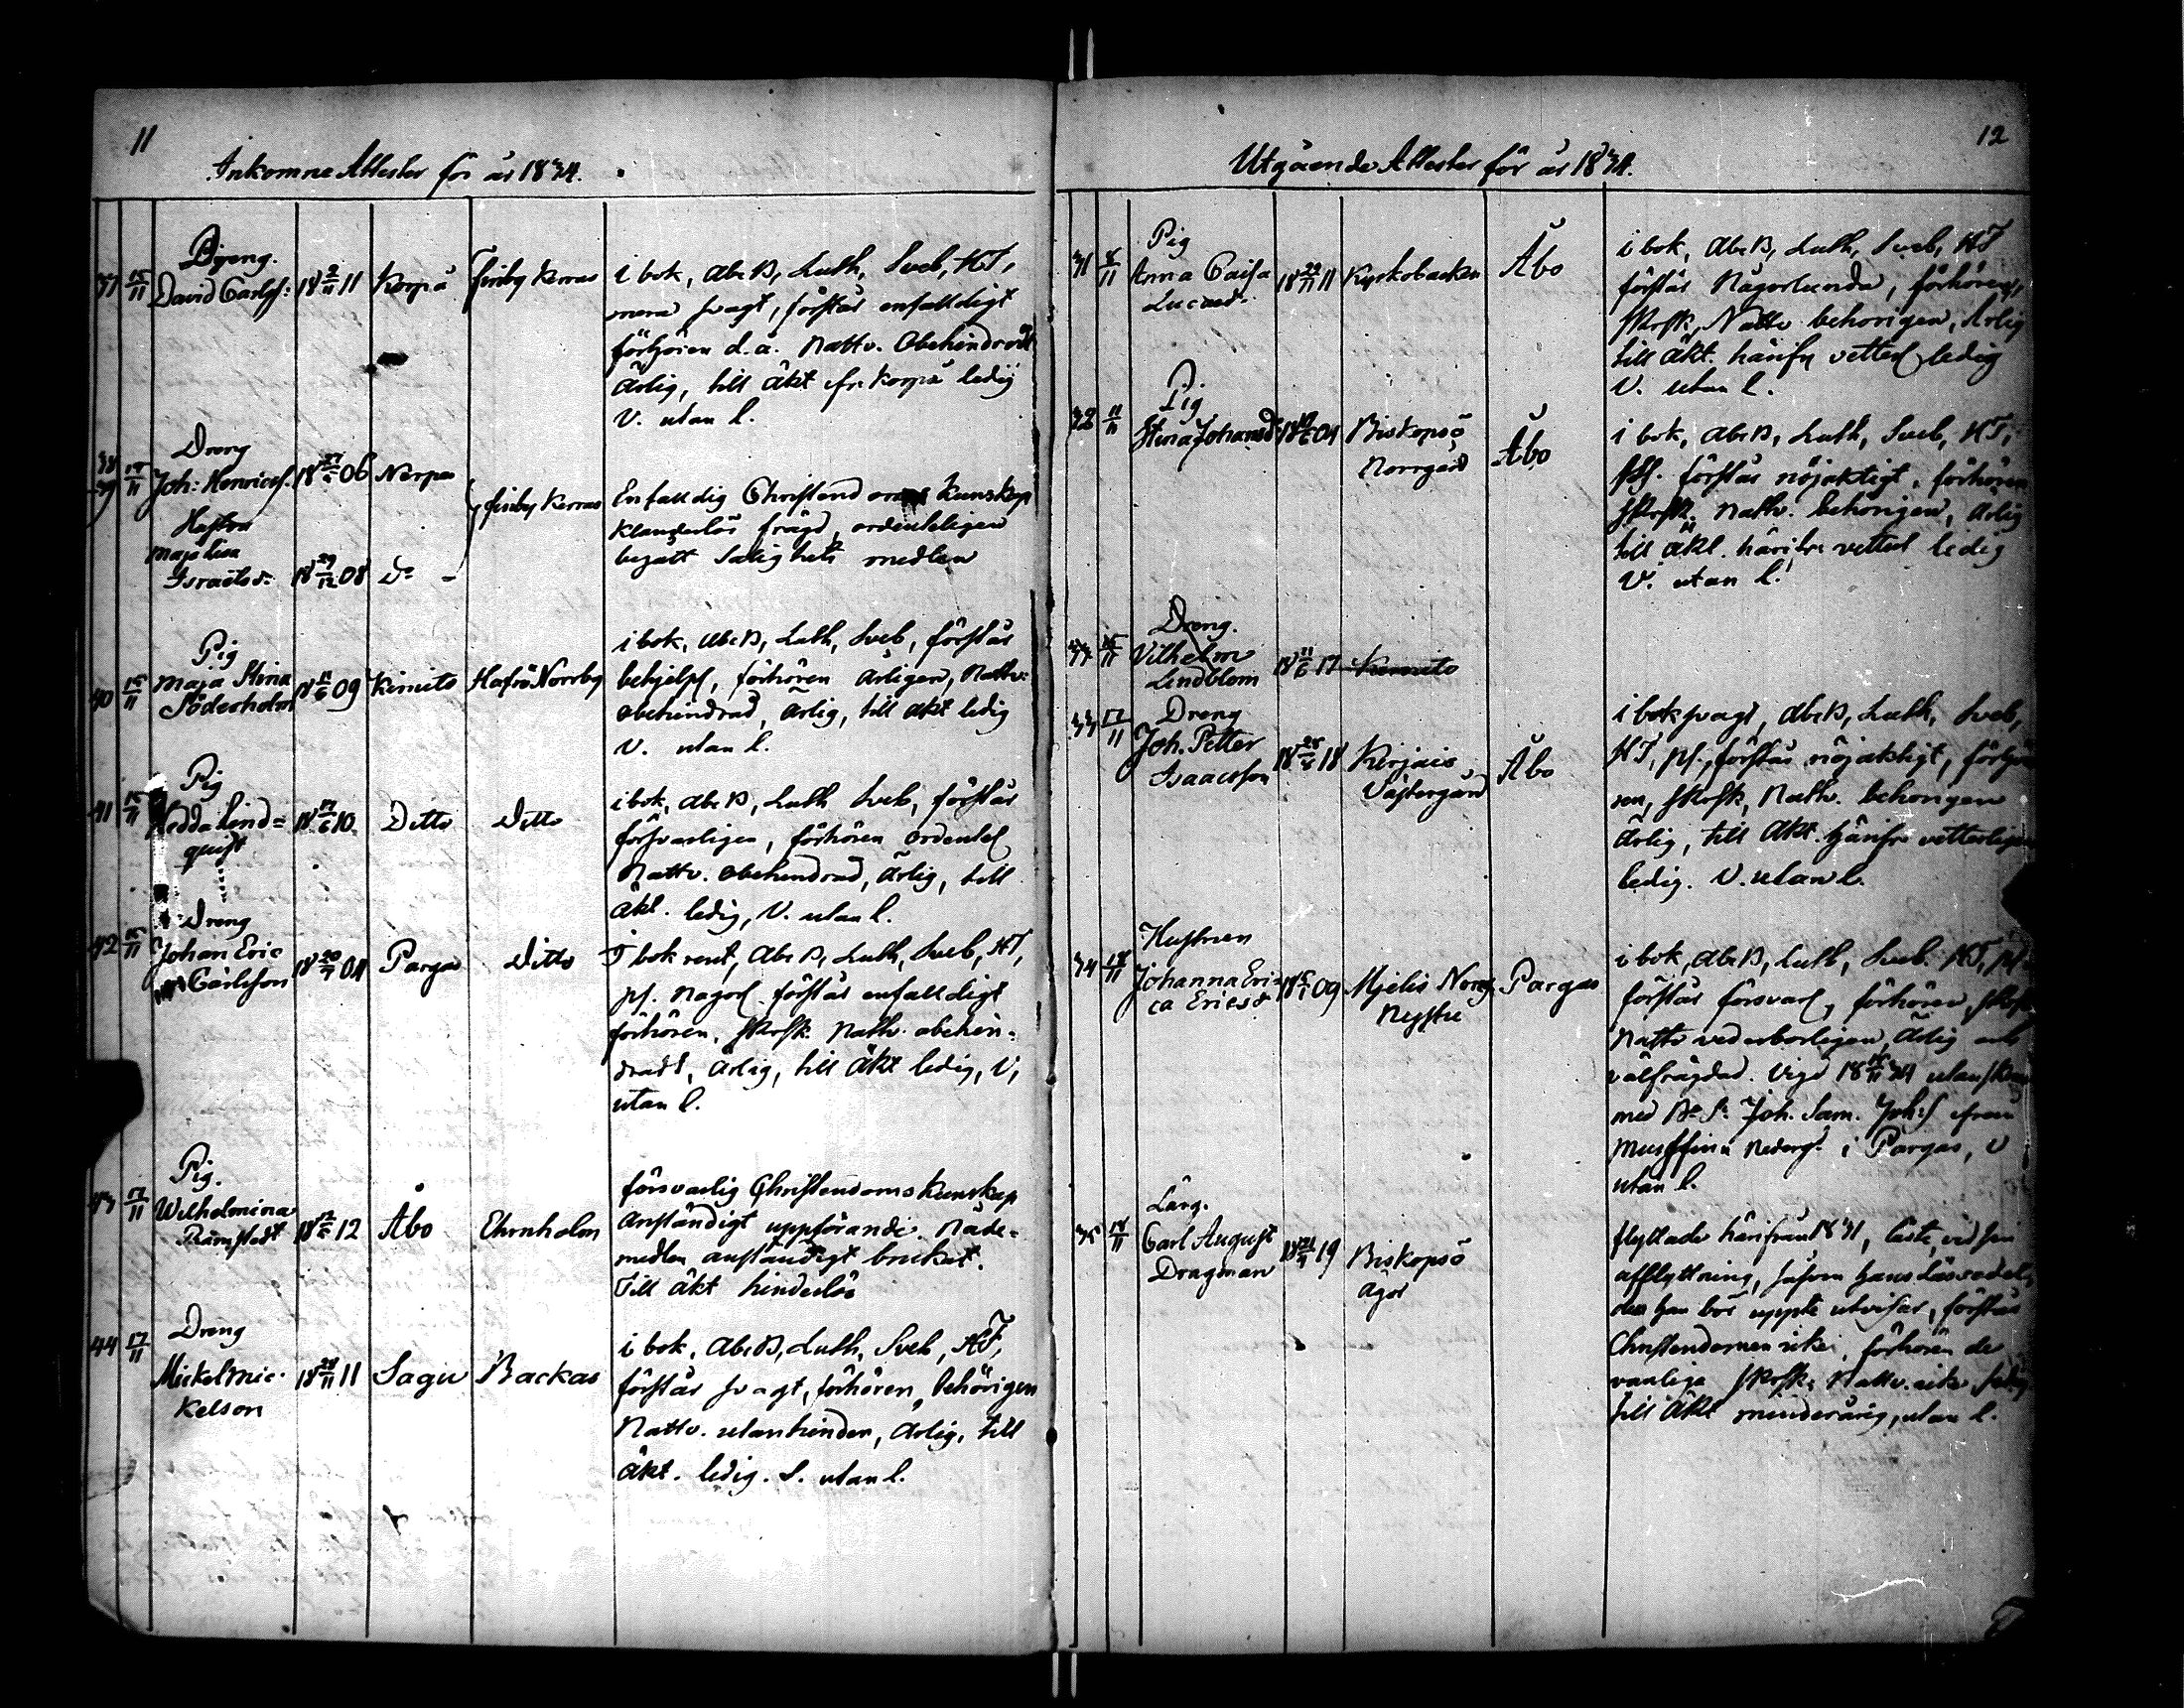 11
Ankomne Attester för år 1834.
37 15/11 Dreng.
David Carlss: 18 2/11 11 Korpo Finby Kerras
i bok, Abc B, Luth, Sveb, HT,
mera svagt, förstår enfalldigt
förhören d. a. Nattv. Obehindrad
Ärlig, till äkt. fr. Korpo ledig
V. utan l.
38 15/11 Dreng
39 Joh: Henricss. 18 06 Nerpes
Hustru
Maja Lisa
Israelsd: 18 29/12 08 Do
Finby Kerras
Enfalldig Christend oms Kunskap
klanderlös frägd, ordenteligen
begått Salighets medlen
40 15/11 Pig
Maja Stina
Söderholm 18 09 Kimito Hafrö Norrby
i bok, Abc B, Luth, Sveb, förstår
behjelpl, förhören Ärligen, Nattv:
obehindrad, Ärlig, till äkt ledig
V. utan l.
41 15/11 Pig
Hedda Lind=
quist 18 10 Ditto Ditto
i bok, Abc B, Luth Sveb, förstår
försvarligen, förhören ordentel
Nattv. obehindrad, Ärlig, till
äkt. ledig, V. utan l.
42 15/11 Dreng
Johan Eric
Carlsson 18 20/7 04 Pargas Ditto
I bok rent, Abc B, Luth, Sveb, HT,
ps. Någorl. förstår enfalldigt
förhören, skrsk. Nattv. obehin-
dradt, Ärlig, till äkt ledig, V,
utan l.
43 17/11 Pig.
Wilhelmina
18 12 Åbo Ehrnholm
försvarlig Christendoms Kunskap
Anständigt uppförande. Nåde-
medlen anständigt brukat.
Till äkt hinderlös
44 17/11 Dreng
Mickel Mic-
kelson 18 29/11 11 Sagu Backas
i bok, Abc B, Luth, Sveb, HT,
förstår svagt, förhören, behörigen
Nattv. utan hinder, Ärlig, till
äkt. ledig. S. utan l.
12
Utgående Attester för år 1834.
31 8/11 Pig
Anna Caisa
Lucasd. 18 11 Kyrkobacken Åbo
i bok, Abc B, Luth, Sveb, HT
förstår Någorlunda, förhören,
skrsk, Nattv behörigen, Ärlig
till äkt. härifr vetterl ledig
V. utan l.
32 11/11 Pig
Stina Johansd: 18 04 Biskopsö
Norrgård Åbo
i bok, Abc B, Luth, Sveb, HT,
förstår nöjaktigt, förhören
skrsk, Nattv. behörigen, Ärlig
till äkt. härifr vetterl ledig
V. utan l.
33 15/11 Dreng.
Vilhelm
Lindblom 18 11/6 17 Kimito
33 17/11 Dreng
Joh. Petter
Isaacsson 18 18 Kirjais
Västergård Åbo
i bok svagt, Abc B, Luth, Sveb,
HT, ps., förstår nöjaktligt, förhö
ren, skrsk, Nattv. behörigen
Ärlig, till äkt. härifr vetterligen
ledig. V. utan l.
34 18/11 Hustrun
Johanna Eri-
ca Ericsd 18 09 Mjelis Norrg Pargas
i bok, Abc B, Luth, Sveb. HT, ps.
förstår försvarl, förhören, skrsk
Nattv vederborligen, Ärlig och
välfrägdad. Vigd 18 34
med Joh. Sam. Joh:s ifrån
Nederg. i Pargas, V
utan l.
35 18/11 Lärg.
Carl August
Dragman 18 19 Biskopsö
ägor
flyttade härifrån 1831, läste, vid sin
afflyttning, såsom hans Läsesedel,
den han bör uppte utvisar, förstår
Christendomen icke, förhören de
vanliga skrsk. Nattv. icke,
till äkt minderårig, utan l.